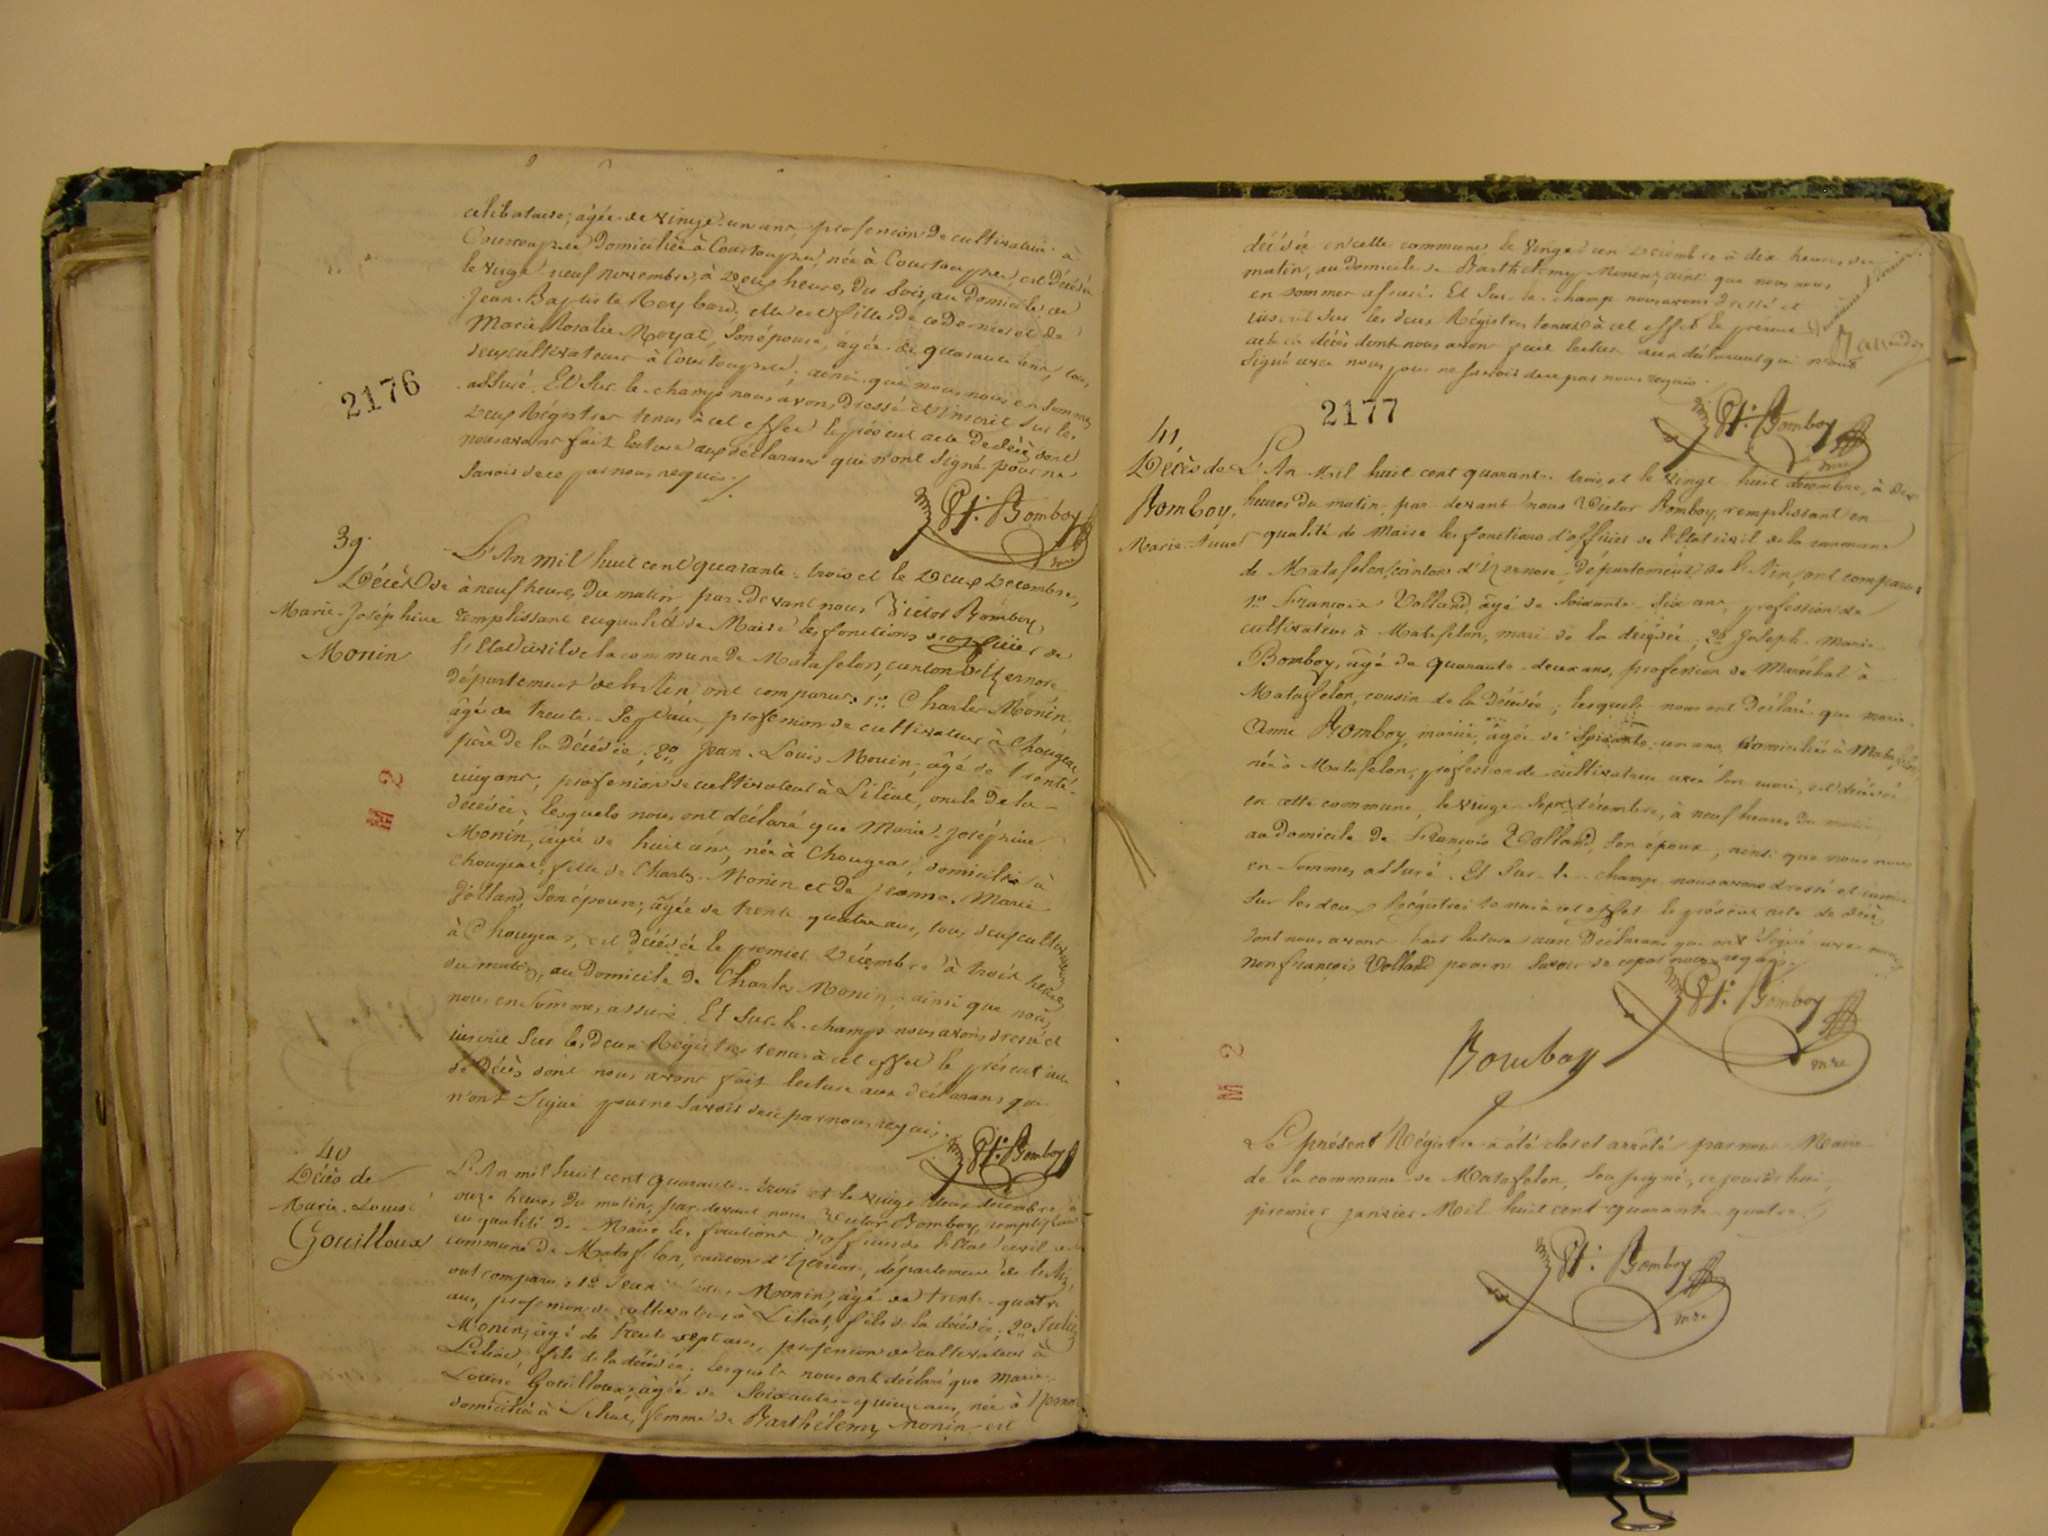 celibataire, âgée de vingt un ans, profession de cultivateur à
Courtouphle domiciliée à Courtouphle, née à Courtouphle, est décédée
le vingt neuf novembre, à deux heures, du soir, au domicile de
Jean-Baptiste Reybard, elle est fille de ce dernier et de
Marie Rosalie Royat, son épouse, âgée de quarante ans, tous
deux cultivateurs à Courtouphle; ainsi que nous nous en sommes
assuré. Et sur le champ nous avons dressé et inscrit sur les
2176
deux Régistres tenus à cet effet le présent acte de décès dont
nous avons fait lecture aux déclarans qui n'ont signé pour ne
savoir de ce par nous requis.
Vt. Bomboy
mre
39.
Décès de
Marie-Joséphine
Monin
L'An mil huit cent quarante-trois et le deux décembre,
à neuf heures du matin par devant nous Victor Bomboy,
remplissant en qualité de Maire les fonctions d'officier de
l'Etat civil de la commune de Matafelon, canton d'Izernore
département de l'Ain ont comparus 1o. Charles Monin,
âgé de trente-sept ans, profession de cultivateur à Chougeat,
père de la décédée; 2o. Jean-Louis Monin, âgé de trente-
cinq ans, profession de cultivateur à Liliat, oncle de la
décédée; lesquels nous ont déclaré que Marie-Joséphine
Monin, âgée de huit ans, née à Chougeat, domiciliée à
Chougeat, fille de Charles Monin et de Jeanne-Marie
Volland, son épouse, âgée de trente quatre ans, tous deux cultivateurs
à Chougeat, est décédée le premier décembre à trois heures
du matin, au domicile de Charles Monin, ainsi que nous
nous en sommes assuré. Et sur-le-champ nous avons dressé et
inscrit sur les deux Régistres tenus à cet effet le présent acte
de décès dont nous avons fait lecture aux déclarans qui
n'ont signé pour ne savoir de ce par nous requis.
Vt. Bomboy
M 2
40
Décès de
Marie-Louise
Gouilloux
L'An mil huit cent quarante-trois et le vingt deux décembre à
onze heures du matin, par devant nous Victor Bomboy remplissant
en qualité de Maire les fonctions d'officier de l'Etat civil de la
commune de Matafelon, canton d'Izernore, département de l'Ain,
ont comparus 1o Jean Monin, âgé de trente-quatre
ans, profession de cultivateur à Liliat, fils de la décédée; 2o Julien
Monin, âgé de trente sept ans, profession de cultivateur à
Liliat, fils de la décédée; lesquels nous ont déclaré que Marie-
Louise Gouilloux, âgée de soixante-quinze ans, née à
domiciliée à Liliat, femme de Barthélemy Monin est
décédée en cette commune le vingt un décembre à dix heures du
matin, au domicile de Barthelemy Monin, ainsi que nous nous
en sommes assuré. Et sur-le-champ nous avons dressé et
inscrit sur les deux Régistres tenus à cet effet le présent
acte de décès dont nous avons fait lecture aux déclarans qui n'ont
signé avec nous pour ne savoir de ce par nous requis.
Vt. Bomboy
mre
2177
41
Décès de
Bomboy,
Marie-Anne
L'An mil huit cent quarante-trois et le vingt-huit décembre, à dix
heures du matin, par devant nous Victor Bomboy, remplissant en
qualité de Maire les fonctions d'officier de l'Etat civil de la commune
de Matafelon, canton d'Izernore, département de l'Ain, ont comparus
1o François Volland, âgé de soixante-dix ans, profession de
cultivateur à Matafelon, mari de la décédée; 2o Joseph-Marie
Bomboy, âgé de quarante-deux ans, profession de Maréchal à
Matafelon, cousin de la décédée; lesquels nous ont déclaré que marie-
Anne Bomboy, mariée, âgée de soixante-un ans, domiciliée à Matafelon,
née à Matafelon, profession de cultivateur avec son mari, est décédée
en cette commune, le vingt-sept décembre, à neuf heures du matin
au domicile de François Volland, son époux, ainsi que nous nous
en sommes assuré. Et sur-le-champ nous avons dressé et inscrit
sur les deux Régistres tenus à cet effet le présent acte de décès,
dont nous avons fait lecture aux déclarans qui ont signé avec nous,
non françois Volland pour ne savoir de ce par nous requis.
Vt. Bomboy
mre
Bomboy
M 2
Le présent Régistre a été clos et arrêté par nous Maire
de la commune de Matafelon, soussigné, ce jourd'hui
premier janvier Mil huit cent quarante-quatre.
Vt. Bomboy
mre